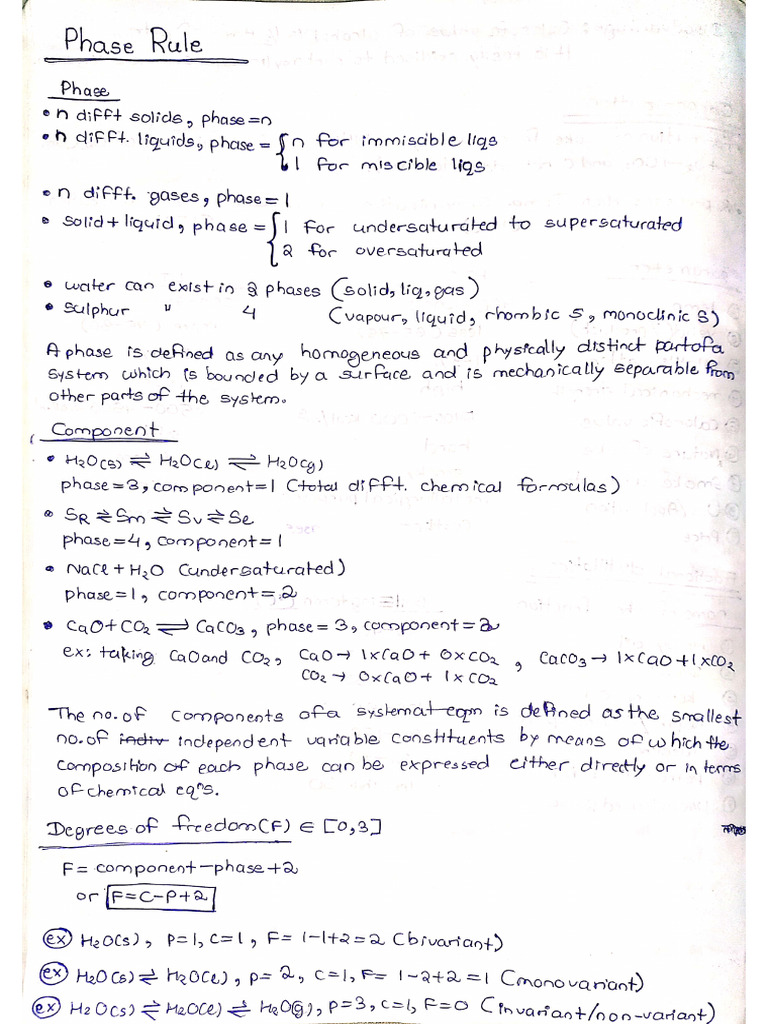 Phase Rule
Phase
• n difft solids, phase=n
• n difft. liquids, phase = { n for immiscible liqs
1 for miscible liqs
• n difft. gases, phase=1
• solid+liquid, phase = { 1 for undersaturated to supersaturated
2 for oversaturated
• water can exist in 3 phases (solid, liq, gas)
• sulphur " 4 (vapour, liquid, rhombic S, monoclinic S)
A phase is defined as any homogeneous and physically distinct part of a
system which is bounded by a surface and is mechanically separable from
other parts of the system.
Component
• H2O(s) ⇌ H2O(l) ⇌ H2O(g)
phase=3, component=1 (total difft. chemical formulas)
• SR ⇌ Sm ⇌ Sv ⇌ Sl
phase=4, component=1
• NaCl + H2O (undersaturated)
phase=1, component=2
• CaO+CO2 ⇌ CaCO3, phase=3, component=2
ex: taking CaO and CO2, CaO → 1xCaO + 0xCO2, CaCO3 → 1xCaO+1xCO2
CO2 → 0xCaO + 1xCO2
The no. of components of a system at eqm is defined as the smallest
no. of indiv independent variable constituents by means of which the
composition of each phase can be expressed either directly or in terms
of chemical eqns.
Degrees of freedom(F) ∈ [0,3]
F= component-phase+2
or F=C-P+2
ex H2O(s), P=1, C=1, F= 1-1+2=2 (bivariant)
ex H2O(s) ⇌ H2O(l), P= 2, C=1, F= 1-2+2=1 (monovariant)
ex H2O(s) ⇌ H2O(l) ⇌ H2O(g), P=3, C=1, F=0 (invariant/non-variant)